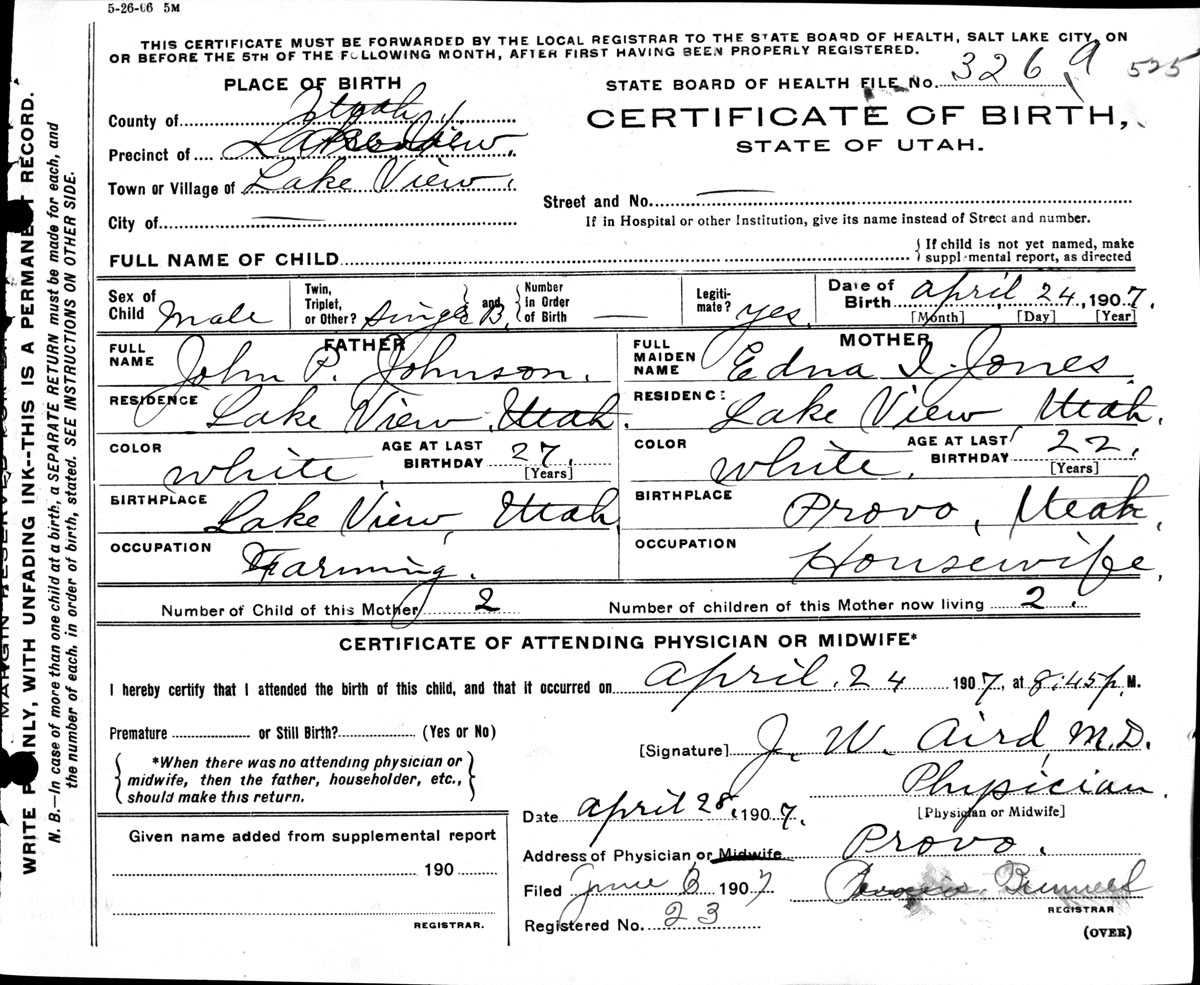 5-26-06 5M
THIS CERTIFICATE MUST BE FORWARDED BY THE LOCAL REGISTRAR TO THE STATE BOARD OF HEALTH, SALT LAKE CITY, ON
OR BEFORE THE 5TH OF THE FOLLOWING MONTH, AFTER FIRST HAVING BEEN PROPERLY REGISTERED.
PLACE OF BIRTH
STATE BOARD OF HEALTH FILE No. 3269 525
County of Utah
CERTIFICATE OF BIRTH,
STATE OF UTAH.
Precinct of Lake View.
Town or Village of Lake View.
Street and No. —
City of —
If in Hospital or other Institution, give its name instead of Street and number.
FULL NAME OF CHILD
{ If child is not yet named, make
supplemental report, as directed
Sex of Child Male
Twin, Triplet, or Other? Single B. } and { Number in Order of Birth —
Legitimate? yes
Date of Birth April 24, 1907.
[Month] [Day] [Year]
FATHER
FULL NAME John P. Johnson.
RESIDENCE Lake View, Utah.
COLOR White, AGE AT LAST BIRTHDAY 27. [Years]
BIRTHPLACE Lake View, Utah,
OCCUPATION Farming.
MOTHER
FULL MAIDEN NAME Edna I. Jones.
RESIDENC: Lake View Utah.
COLOR White, AGE AT LAST BIRTHDAY 22. [Years]
BIRTHPLACE Provo, Utah,
OCCUPATION Housewife,
Number of Child of this Mother 2 Number of children of this Mother now living 2.
CERTIFICATE OF ATTENDING PHYSICIAN OR MIDWIFE*
I hereby certify that I attended the birth of this child, and that it occurred on April. 24 1907, at 8:45 p. M.
Premature or Still Birth? (Yes or No)
[Signature] J. W. Aird, M.D.
{ *When there was no attending physician or
midwife, then the father, householder, etc.,
should make this return. }
Physician.
[Physician or Midwife]
Date April 28, 1907.
Given name added from supplemental report
190
REGISTRAR.
Address of Physician or Midwife Provo.
Filed June 6 1907 Bunnell
REGISTRAR
Registered No. 23
(OVER)
MARGIN RESERVED FOR
WRITE PLAINLY, WITH UNFADING INK--THIS IS A PERMANENT RECORD.
N. B.—In case of more than one child at a birth, a SEPARATE RETURN must be made for each, and
the number of each, in order of birth, stated. SEE INSTRUCTIONS ON OTHER SIDE.